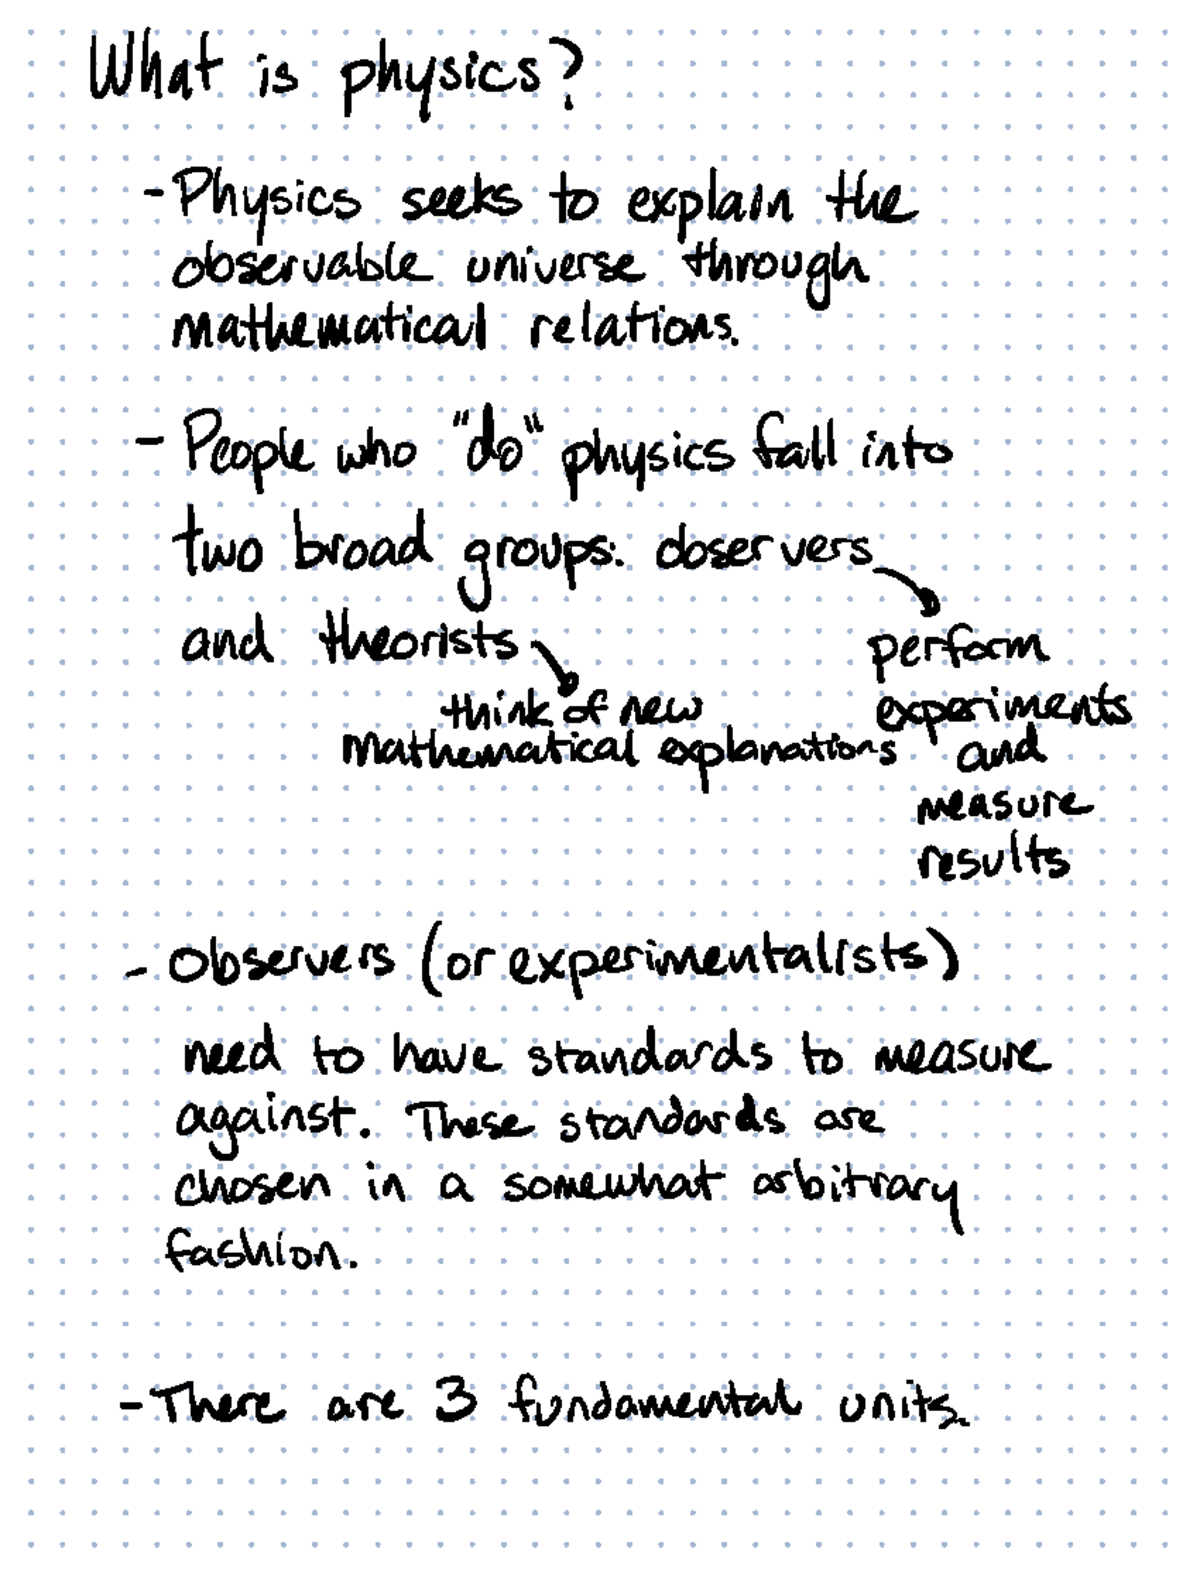 What is physics?
- Physics seeks to explain the
observable universe through
mathematical relations.
- People who "do" physics fall into
two broad groups: observers
and theorists
think of new
mathematical explanations
perform
experiments
and
measure
results
- Observers (or experimentalists)
need to have standards to measure
against. These standards are
chosen in a somewhat arbitrary
fashion.
- There are 3 fundamental units.